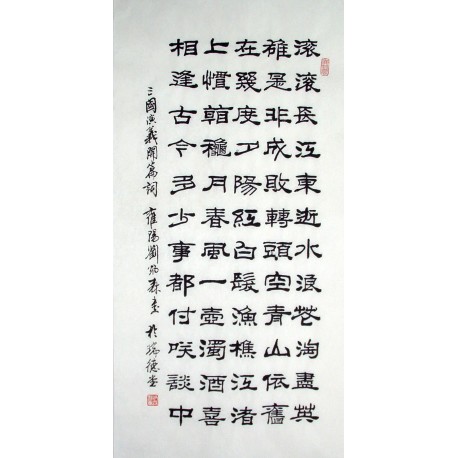 滚滚長江東逝水浪花淘盡英
雄是非成敗轉頭空青山依舊
在幾度夕陽紅白髮漁樵江渚
上慣看穐月春風一壺濁酒喜
相逢古今多少事都付咲談中
三國演義開篇詞 雍陽劉炳森書於德堂